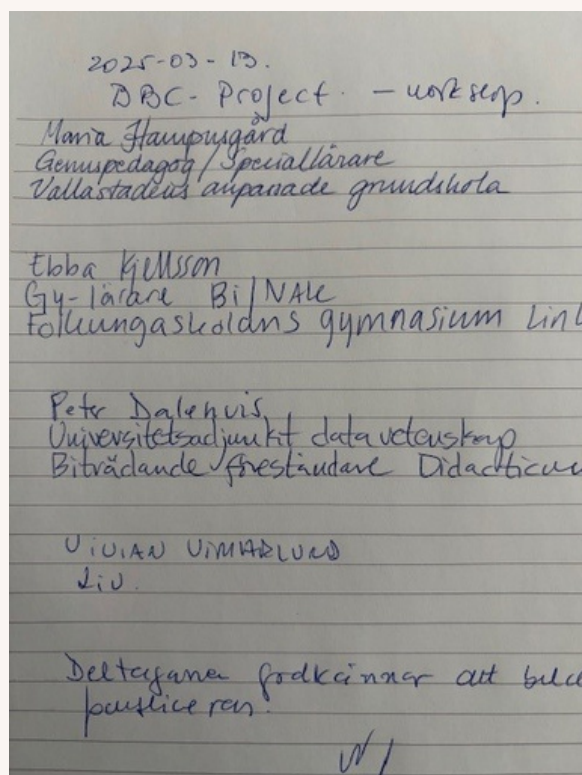 2025-03-13.
DBC-Project. - workshop.
Maria Hampusgård
Genuspedagog/Speciallärare
Vallastadens anpassade grundskola
Ebba Kjellsson
Gy-lärare Bi/NAK
Folkungaskolans gymnasium Link
Peter Dalenius
Universitetsadjunkt datavetenskap
Biträdande föreståndare Didacticum
VIVIAN VIMARLUND
LiU.
Deltagarna godkänner att
publiceras.